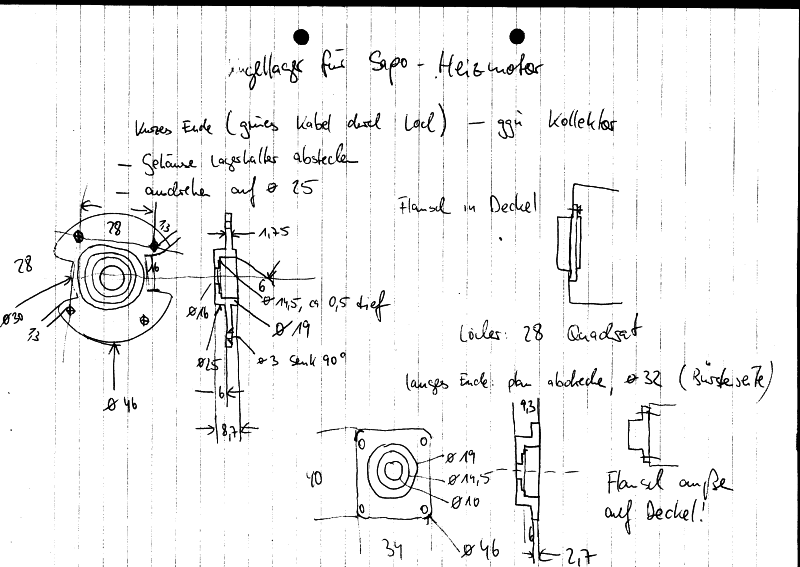 für Sapo - Heizmotor
Kurzes Ende (grünes Kabel durch Loch) - ggü Kollektor
- Gehäuse Lagerhalter abstechen
- andrehen auf ⌀ 25
28
73
28
16
⌀30
73
⌀ 46
1,75
6
⌀ 14,5, ca 0,5 tief
⌀16
⌀ 19
⌀25
⌀ 3 senk 90°
6
8,7
Flansch in Deckel
Löcher: 28 Quadrat
langes Ende: plan abdrehen, ⌀ 32 (Bürstenseite)
9,3
40
⌀ 19
⌀ 14,5
⌀ 10
34
⌀ 46
6
2,7
Flansch außen
auf Deckel!